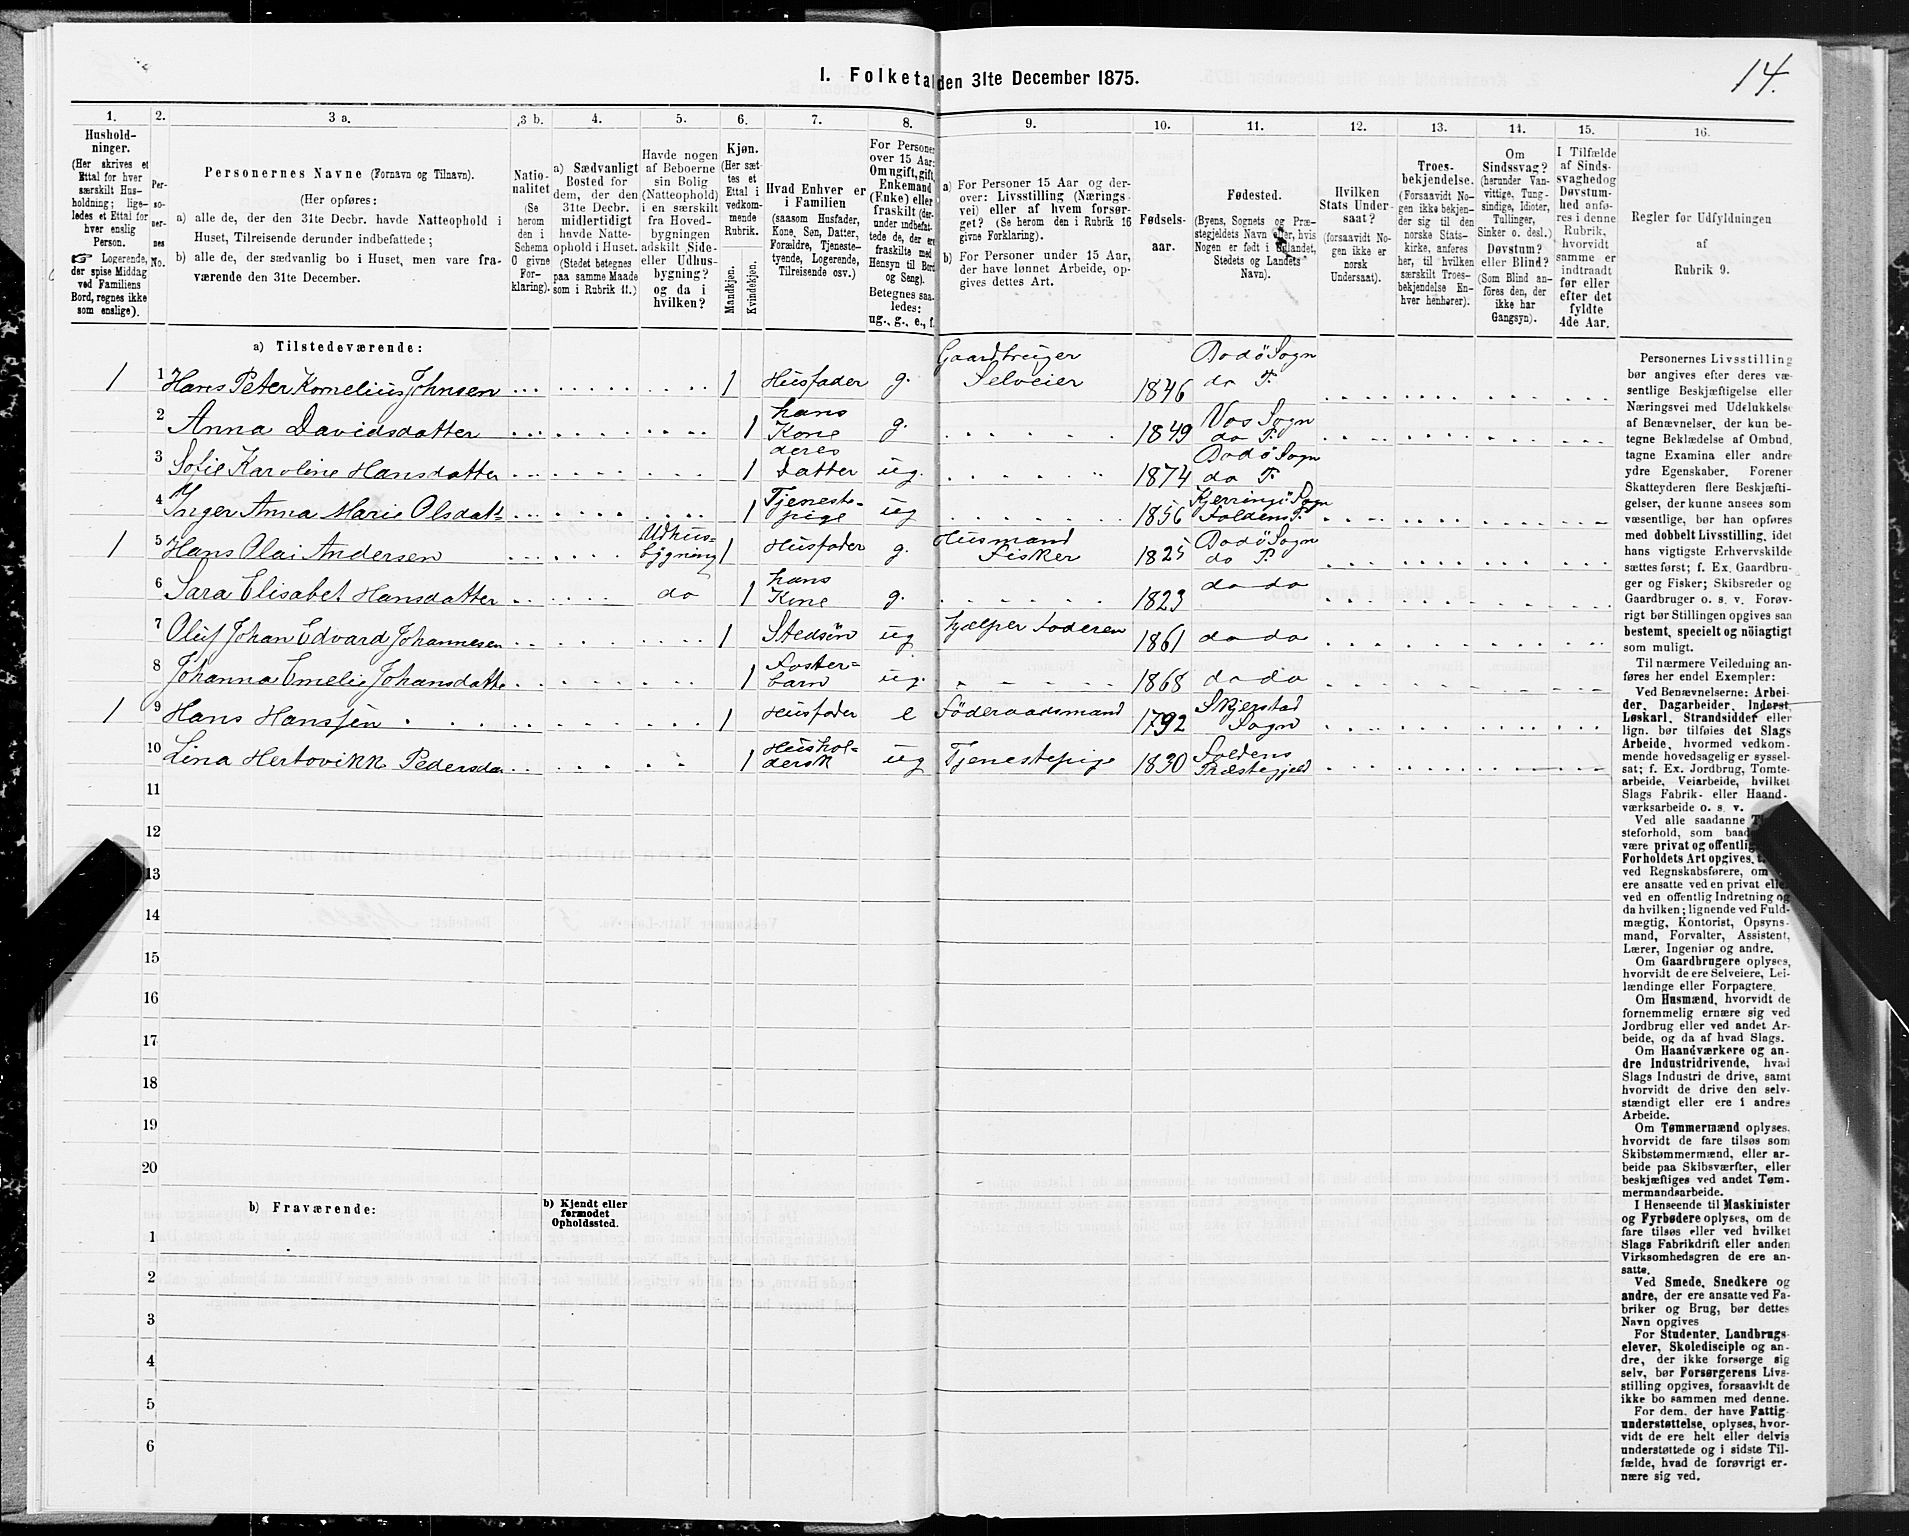 14.
I. Folketal den 31te December 1875.
1. 2. 3 a. 3 b. 4. 5. 6. 7. 8. 9. 10. 11. 12. 13. 14. 15. 16.
Hushold-
ninger.
(Her skrives et
Ettal for hver
særskilt Hus-
holdning; lige-
ledes et Ettal for
hver enslig
Person.
☞ Logerende,
der spise Middag
ved Familiens
Bord, regnes ikke
som enslige).
Per-
so-
ner-
nes
No.
Personernes Navne (Fornavn og Tilnavn).
(Her opføres:
a) alle de, der den 31te Decbr. havde Natteophold i
Huset, Tilreisende derunder indbefattede;
b) alle de, der sædvanlig bo i Huset, men vare fra-
værende den 31te December.
Natio-
nalitet
(Se
herom
den i
Schema
O givne
For-
klaring).
a) Sædvanligt
Bosted for
dem, der den
31te Decbr.
midlertidigt
havde Natte-
ophold i Huset.
(Stedet betegnes
paa samme Maade
som i Rubrik 11.)
Havde nogen
af Beboerne
sin Bolig
(Natteophold)
i en særskilt
fra Hoved-
bygningen
adskilt Side-
eller Udhus-
bygning?
og da i
hvilken?
Kjøn.
(Her sæt-
tes et
Ettal i
vedkom-
mende
Rubrik.
Mandkjøn.
Kvindekjøn.
Hvad Enhver er
i Familien
(saasom Husfader,
Kone, Søn, Datter,
Forældre, Tjeneste-
tyende, Logerende,
Tilreisende osv.)
For Personer
over 15 Aar:
Om ugift, gift,
Enkemand
(Enke) eller
fraskilt (der-
under indbefat-
tede de, der ere
fraskilte med
Hensyn til Bord
og Seng).
Betegnes saa-
ledes:
ug., g., e., f.
a) For Personer 15 Aar og der-
over: Livsstilling (Nærings-
vei) eller af hvem forsør-
get? (Se herom den i Rubrik 16
givne Forklaring).
b) For Personer under 15 Aar,
der have lønnet Arbeide, op-
gives dettes Art.
Fødsels-
aar.
Fødested.
(Byens, Sognets og Præ-
stegjeldets Navn eller, hvis
Nogen er født i Udlandet,
Stedets og Landets
Navn).
Hvilken
Stats Under-
saat?
(forsaavidt No-
gen ikke er
norsk
Undersaat).
Troes-
bekjendelse.
(Forsaavidt No-
gen ikke bekjen-
der sig til den
norske Stats-
kirke, anføres
her, til hvilken
særskilt Troes-
bekjendelse En-
hver henhører).
Om
Sindssvag?
(herunder Van-
vittige, Tung-
sindige, Idioter,
Tullinger,
Sinker o. desl.)
Døvstum?
eller Blind?
(Som Blind an-
føres den, der
ikke har
Gangsyn).
I Tilfælde
af Sinds-
svaghed og
Døvstum-
hed anfø-
res i denne
Rubrik,
hvorvidt
samme er
indtraadt
før eller
efter det
fyldte
4de Aar.
Regler for Udfyldningen
af
Rubrik 9.
a) Tilstedeværende:
1 1 Hans Peter Kornelius Johnsen 1 Husfader g. Gaardbruger Selveier 1846 Bodö Sogn do P.
2 Anna Davidsdatter 1 hans Kone g. 1849 Vos Sogn do P.
3 Sofie Karoline Hansdatter 1 deres Datter ug. 1874 Bodö Sogn do P.
4 Inger Anna Marie Olsdat= 1 Tjeneste= pige ug 1856 Kjerringö Sogn Foldens P.
1 5 Hans Olai Andersen Udhus= bygning 1 Husfader g. Husmand Fisker 1825 Bodö Sogn do P.
6 Sara Elisabet Hansdatter do 1 hans Kone g. 1823 do do
7 Oluf Johan Edvard Johannesen 1 Stedsön ug hjælper Faderen 1861 do do
8 Johanna Emelie Johansdatte 1 Foster= barn ug. 1868 do do
1 9 Hans Hanssen 1 Husfader e Föderaadsmand 1792 Skjerstad Sogn
10 Lina Hertovikk Pedersda 1 Hushol= dersk ug Tjenestepige 1830 Foldens Præstegjeld
11
12
13
14
15
16
17
18
19
20
b) Fraværende:
b) Kjendt eller
formodet
Opholdssted.
1
2
3
4
5
6
Personernes Livsstilling
bør angives efter deres væ-
sentlige Beskjæftigelse eller
Næringsvei med Udelukkelse
af Benævnelser, der kun be-
tegne Beklædelse af Ombud,
tagne Examina eller andre
ydre Egenskaber. Forener
Skatteyderen flere Beskjæfti-
gelser, der kunne ansees som
væsentlige, bør han opføres
med dobbelt Livsstilling, idet
hans vigtigste Erhvervskilde
sættes først; f. Ex. Gaardbru-
ger og Fisker; Skibsreder og
Gaardbruger o. s. v. Forøv-
rigt bør Stillingen opgives saa
bestemt, specielt og nöiagtigt
som muligt.
Til nærmere Veiledning an-
føres her endel Exempler:
Ved Benævnelserne: Arbei-
der, Dagarbeider, Inderst,
Løskarl, Strandsidder eller
lign. bør tilføies det Slags
Arbeide, hvormed vedkom-
mende hovedsagelig er syssel-
sat; f. Ex. Jordbrug, Tomte-
arbeide, Veiarbeide, hvilket
Slags Fabrik- eller Haand-
værksarbeide o. s. v.
Ved alle saadanne
steforhold, som
være privat og offentlig
Forholdets Art opgives,
ved Regnskabsførere, om
ere ansatte ved en privat eller
ved en offentlig Indretning og
da hvilken; lignende ved Fuld-
mægtig, Kontorist, Opsyns-
mand, Forvalter, Assistent,
Lærer, Ingeniør og andre.
Om Gaardbrugere oplyses,
hvorvidt de ere Selveiere, Lei-
lændinge eller Forpagtere.
Om Husmænd, hvorvidt de
fornemmelig ernære sig ved
Jordbrug eller ved andet Ar-
beide, og da af hvad Slags.
Om Haandværkere og an-
dre Industridrivende, hvad
Slags Industri de drive, samt
hvorvidt de drive den selv-
stændigt eller ere i andres
Arbeide.
Om Tømmermænd oplyses,
hvorvidt de fare tilsøs som
Skibstømmermænd, eller ar-
beide paa Skibsværfter, eller
beskjæftiges ved andet Tøm-
mermandsarbeide.
I Henseende til Maskinister
og Fyrbødere oplyses, om de
fare tilsøs eller ved hvilket
Slags Fabrikdrift eller anden
Virksomhedsgren de ere an-
satte.
Ved Smede, Snedkere og
andre, der ere ansatte ved Fa-
briker og Brug, bør dettes
Navn opgives
For Studenter, Landbrugs-
elever, Skoledisciple og an-
dre, der ikke forsørge sig
selv, bør Forsørgerens Livs-
stilling opgives, forsaavidt de
ikke bo sammen med denne.
For dem, der have Fattig-
understøttelse, oplyses, hvor-
vidt de ere helt eller delvis
understøttede og i sidste Til-
fælde, hvad de forøvrigt er-
nære sig ved.